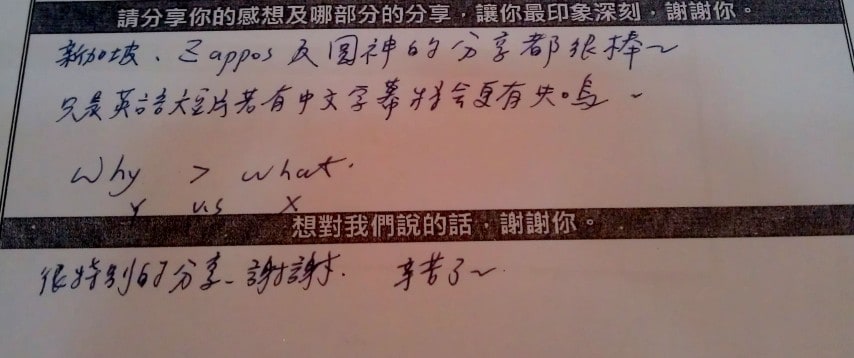 請分享你的感想及哪部分的分享，讓你最印象深刻，謝謝你。
新加坡、Zappos及圖神的分享都很棒～
只是英語大短片若有中文字幕將會更有共鳴～
Why > what.
Y v.s X
想對我們說的話，謝謝你。
很特別的分享、謝謝. 辛苦了～